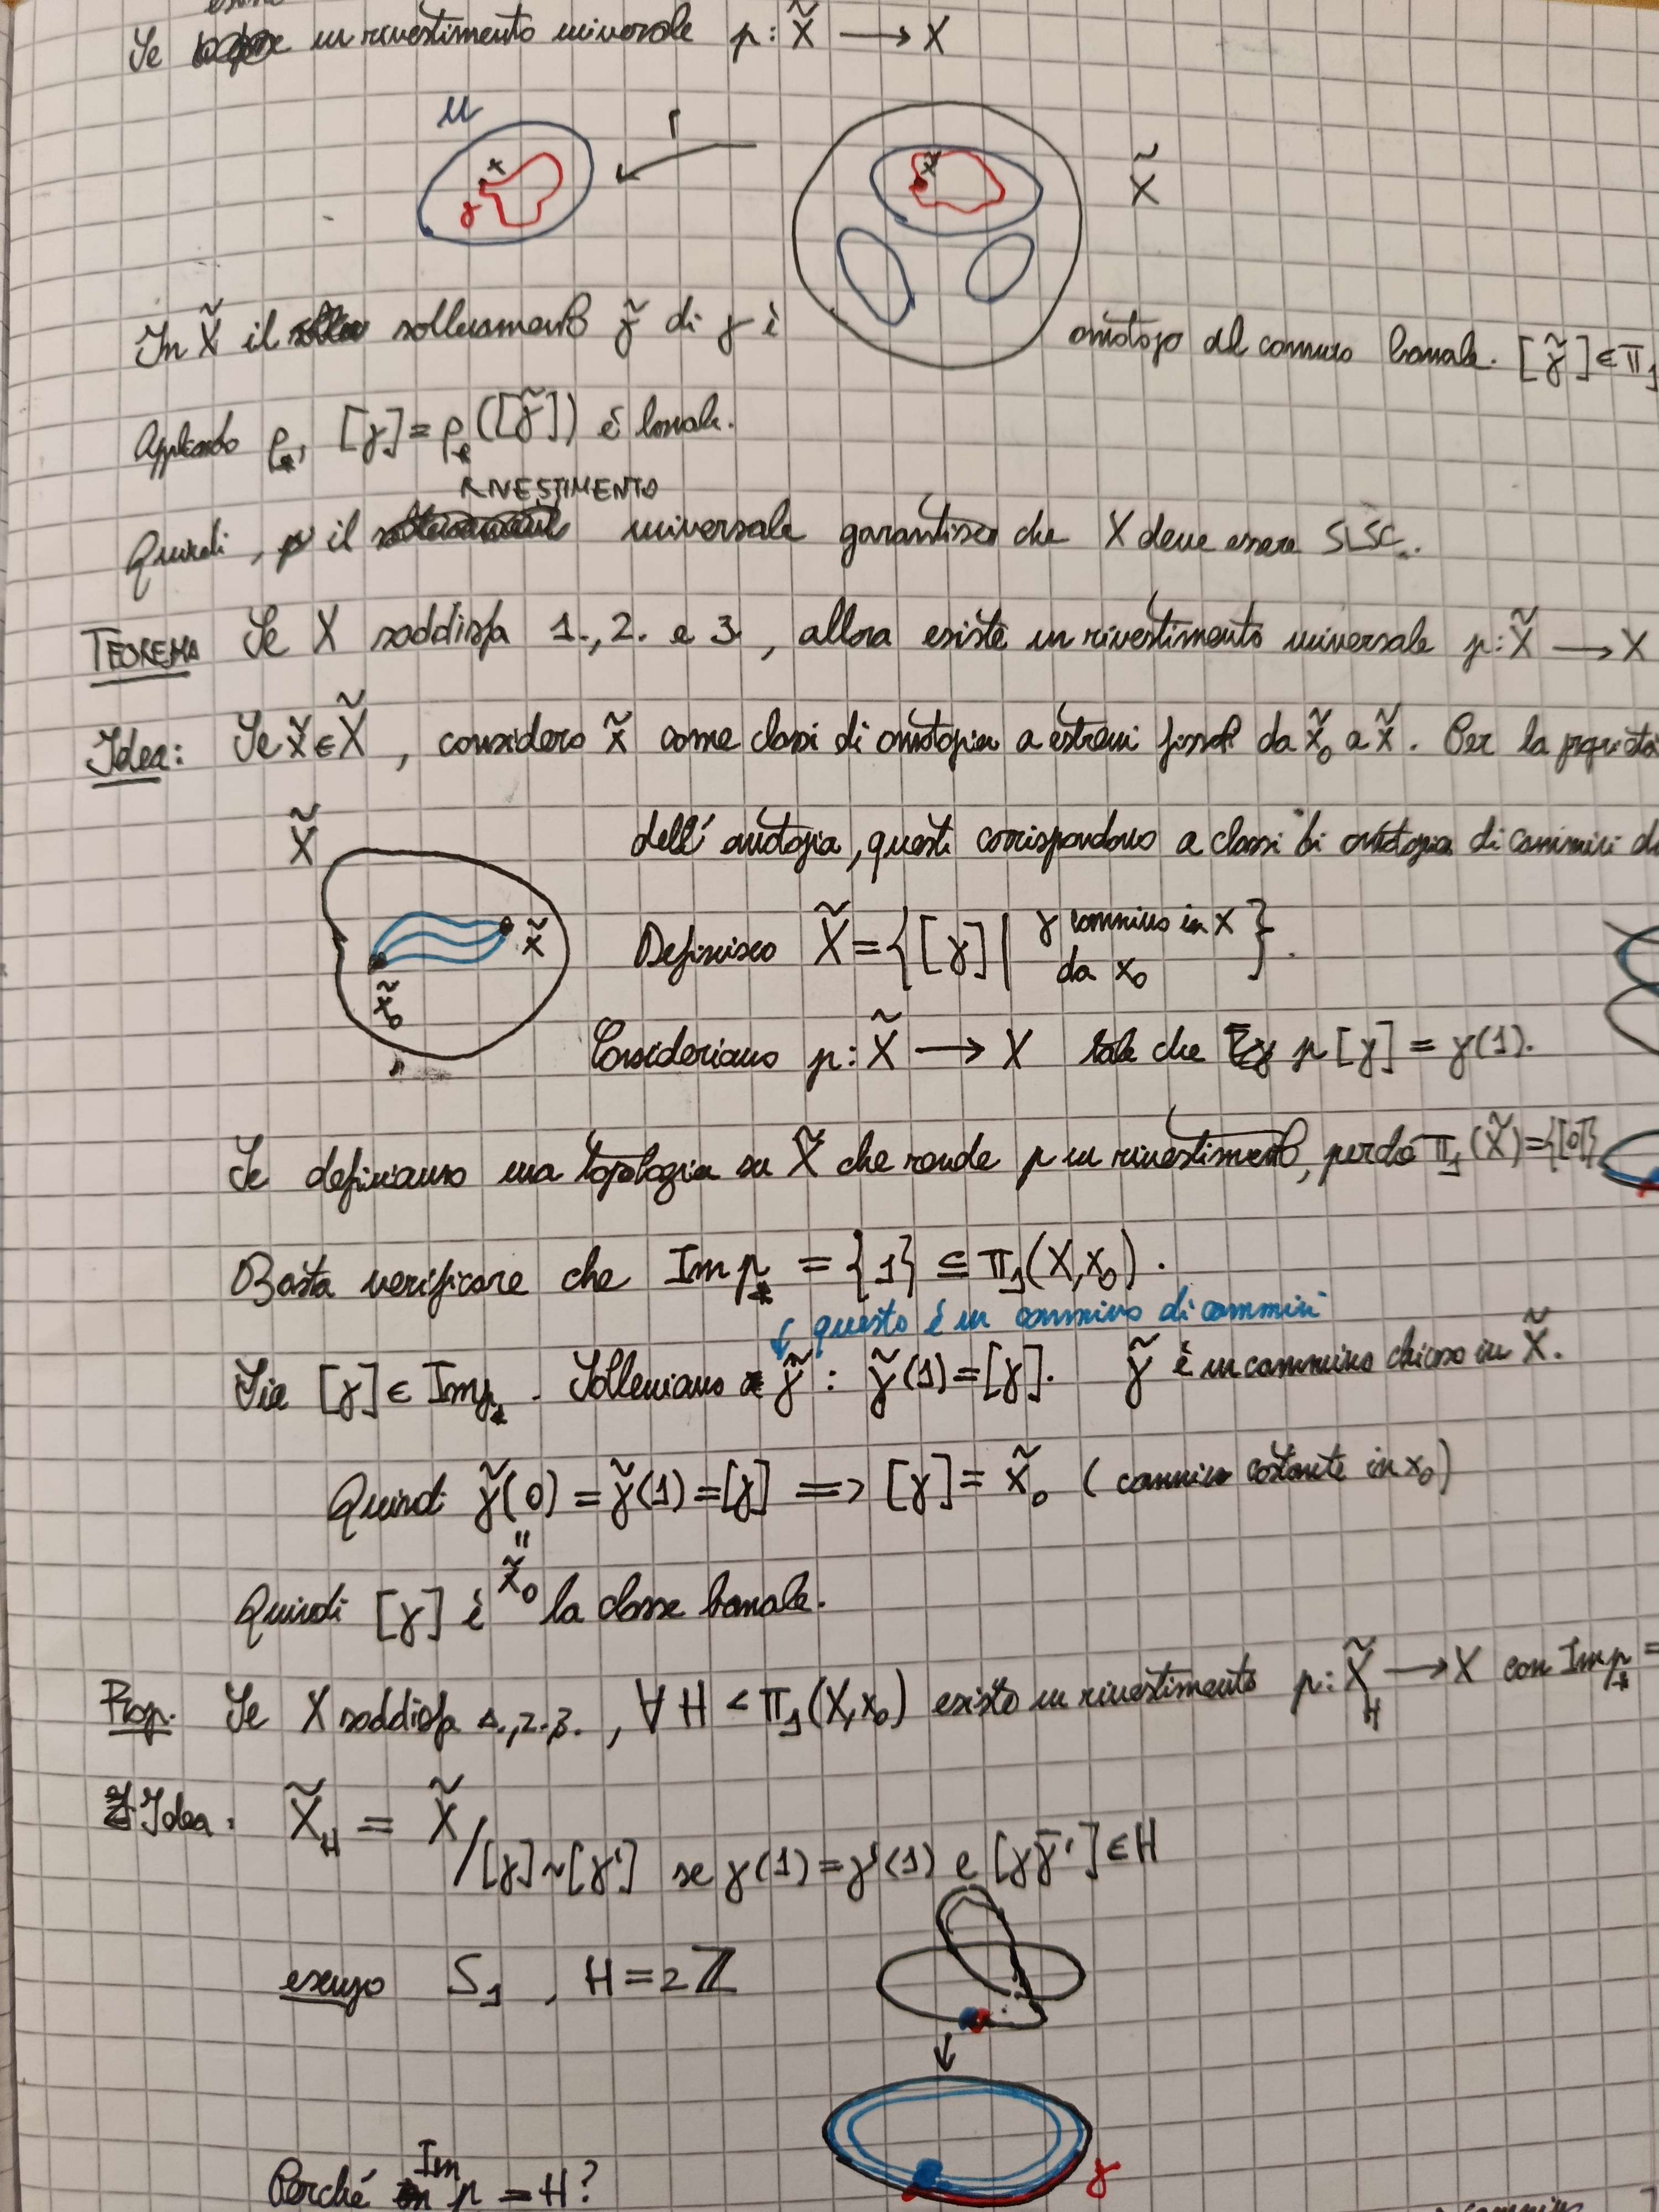 esiste
Se un rivestimento universale p: X̃ ⟶ X
U
p
x
x̃
γ
X̃
In X̃ il sollevamento γ̃ di γ è omotopo al cammino banale. [γ̃] ∈ π₁
Applicando p⁎, [γ] = p⁎([γ̃]) è banale.
RIVESTIMENTO
Quindi, il universale garantisce che X deve essere SLSC.
TEOREMA Se X soddisfa 1., 2. e 3, allora esiste un rivestimento universale p: X̃ ⟶ X
Idea: Se x̃ ∈ X̃, considero x̃ come classi di omotopia a estremi fissati da x̃₀ a x̃. Per la proprietà
X̃
dell'omotopia, questi corrispondono a classi di omotopia di cammini
x̃
x̃₀
Definisco X̃ = {[γ] | γ cammino in X da x₀}.
Consideriamo p: X̃ ⟶ X tale che p[γ] = γ(1).
Se definiamo una topologia su X̃ che rende p un rivestimento, perché π₁(X̃) = {[0]}
Basta verificare che Im p⁎ = {1} ⊆ π₁(X, x₀).
↓ questo è un cammino di cammini
Sia [γ] ∈ Im p⁎. Solleviamo a γ̃ : γ̃(1) = [γ]. γ̃ è un cammino chiuso in X̃.
Quindi γ̃(0) = γ̃(1) = [γ] ⟹ [γ] = x̃₀ (cammino costante in x₀)
"
x̃₀
Quindi [γ] è la classe banale.
Prop. Se X soddisfa 1., 2., 3., ∀ H < π₁(X, x₀) esiste un rivestimento p: X̃_H ⟶ X con Im p⁎ =
Idea. X̃_H = X̃ / [γ]~[γ'] se γ(1) = γ'(1) e [γγ̄'] ∈ H
esempio S₁, H = 2ℤ
γ
Perché Im p = H?